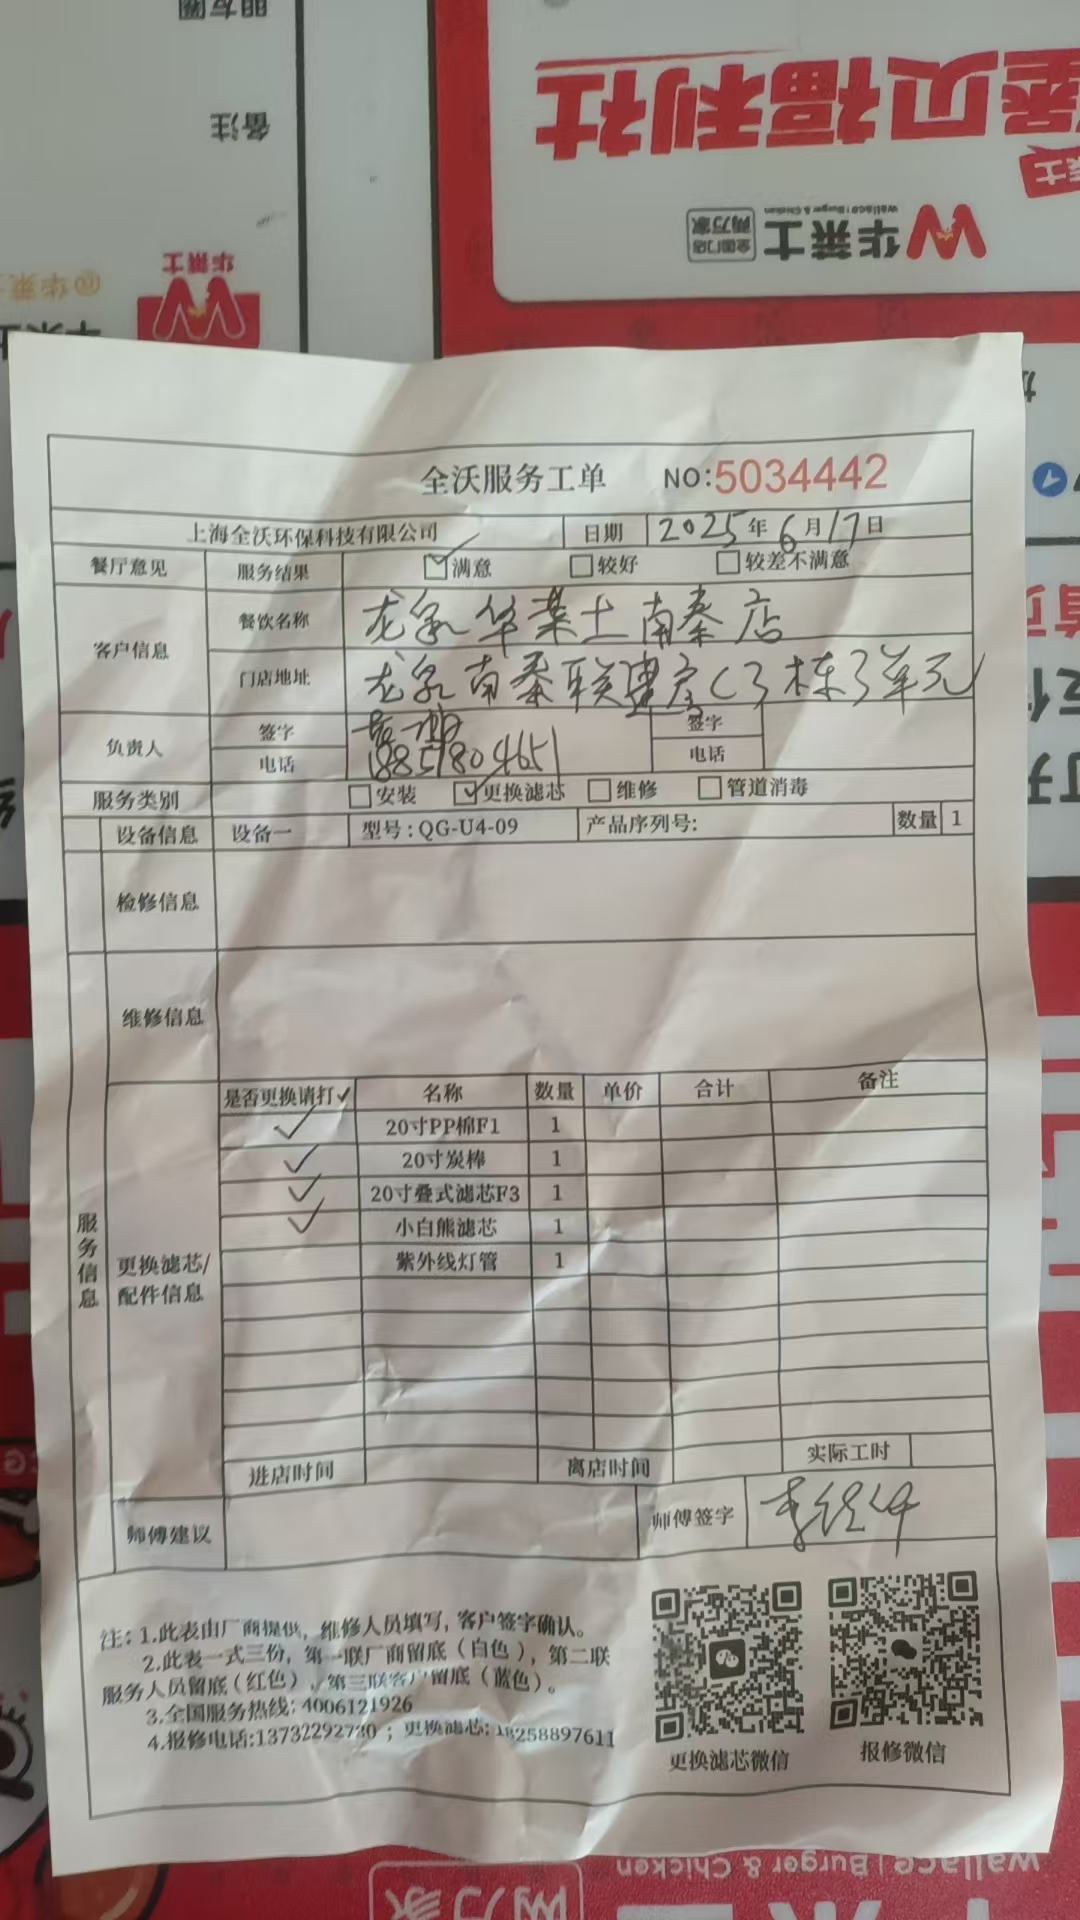 朋友圈
备注
堡贝福利社
华莱士
全国门店
两万家
Wallace | Burger & Chicken
华莱士
@华莱士
全沃服务工单 NO:5034442
上海全沃环保科技有限公司 日期 2025年6月17日
餐厅意见 服务结果 满意 较好 较差不满意
客户信息 餐饮名称 龙泉华莱士南秦店
门店地址 龙泉南秦联建房C3栋3单元
负责人 签字 签字
电话 18857804651 电话
服务类别 安装 更换滤芯 维修 管道消毒
设备信息 设备一 型号:QG-U4-09 产品序列号: 数量 1
检修信息
维修信息
服务信息
更换滤芯/配件信息
是否更换请打✓ 名称 数量 单价 合计 备注
✓ 20寸PP棉F1 1
✓ 20寸炭棒 1
✓ 20寸叠式滤芯F3 1
✓ 小白熊滤芯 1
紫外线灯管 1
进店时间 离店时间 实际工时
师傅建议 师傅签字
注:1.此表由厂商提供,维修人员填写,客户签字确认。
2.此表一式三份,第一联厂商留底(白色),第二联
服务人员留底(红色),第三联客户留底(蓝色)。
3.全国服务热线:4006121926
4.报修电话:13732292730;更换滤芯:18258897611
更换滤芯微信 报修微信
Wallace | Burger & Chicken
两万家